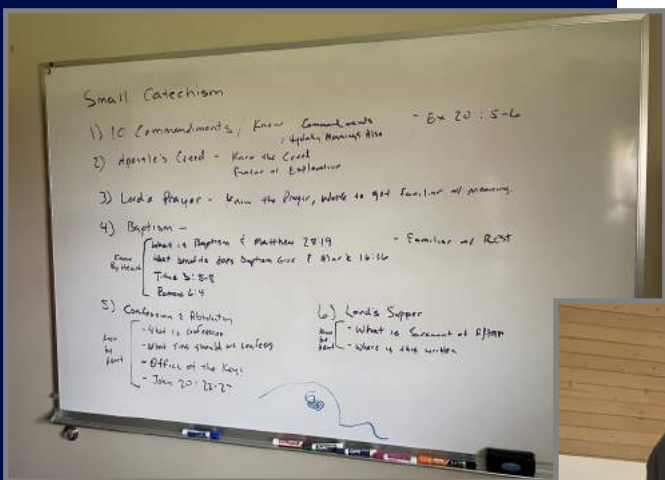 Small Catechism
1) 10 Commandments / Know Commandments - Ex 20:5-6
Meanings Also
2) Apostle's Creed - Know the Creed
Familiar w/ Explanation
3) Lord's Prayer - Know the Prayer, Work to get familiar w/ meaning.
4) Baptism -
Know By Heart
What is Baptism & Matthew 28:19 - Familiar w/ REST
What benefits does Baptism Give & Mark 16:16
Titus 3:5-8
Romans 6:4
5) Confession & Absolution
Know by heart
- What is Confession
- What Sins should we confess
- Office of the Keys
- John 20:22-2
6) Lord's Supper
Know by heart
- What is Sacrament of Altar
- Where is this written